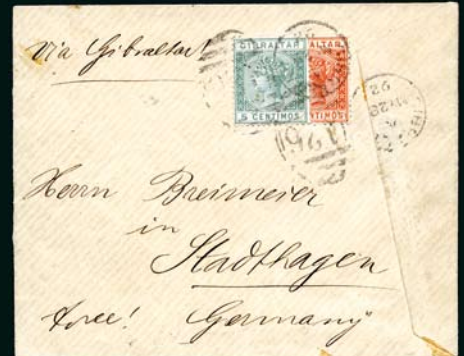 Via Gibraltar!
GIBRALTAR
ALTAR
5 CENTIMOS
NTIMOS
A26
MY 28
92
Herrn Breimeier
in
Stadthagen
free! Germany